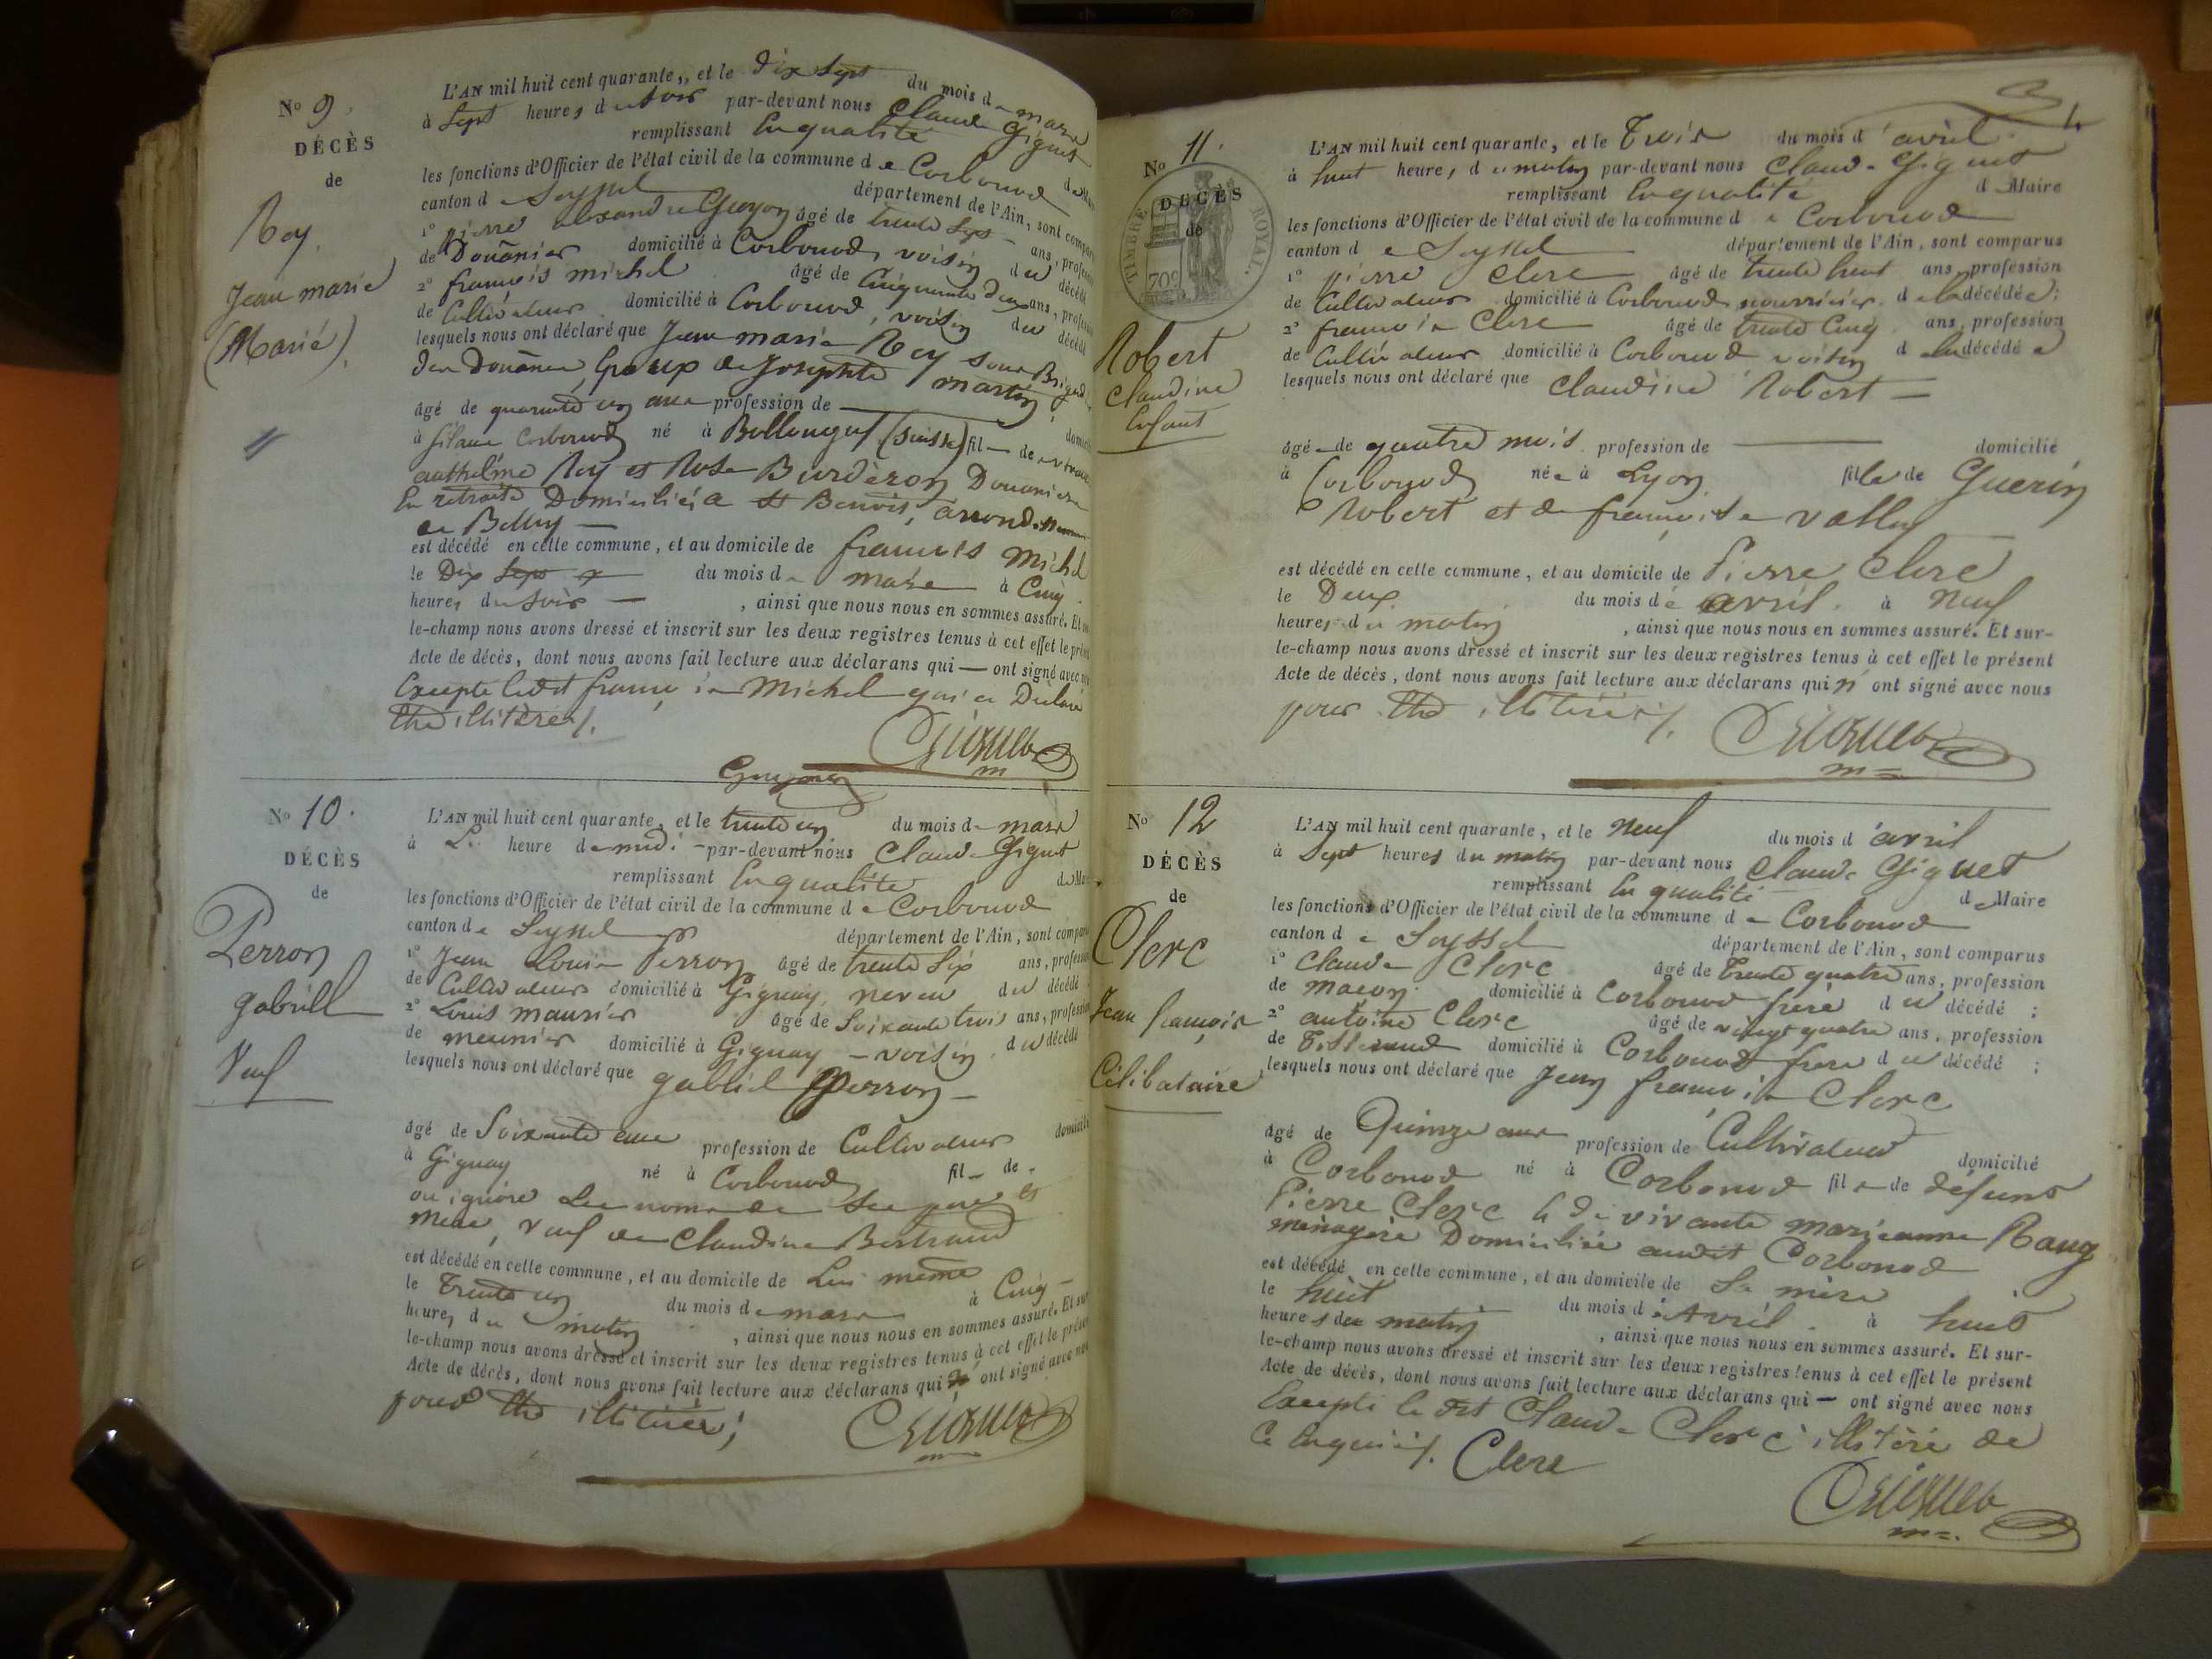 No 9.
DÉCÈS
de
Roy
Jean marie
(Marié)
L'AN mil huit cent quarante, et le dix sept du mois de mars
à Sept heures du soir par-devant nous Claude Giguet
remplissant en qualité de
les fonctions d'Officier de l'état civil de la commune de Corbonod
canton de Seyssel département de l'Ain, sont compar
1o pierre alexandre Guyon âgé de trente Sept ans, profes
de Douânier domicilié à Corbonod, voisin du décédé
2o françois michel âgé de Cinquante deux ans, profess
de Cultivateur domicilié à Corbonod, voisin du décédé
lesquels nous ont déclaré que Jean marie Roy Sous Brigad
des Douânes, Epoux de Josephte martin,
âgé de quarante un ans profession de — domici
à Corbonod né à Bellenguf (Suisse) fil — de
anthelme Roy et Rose Burdèron Douanier
En retraite Domicilié à St Benoit, arrondissem
de Belley —
est décédé en cette commune, et au domicile de françois Michel
le Dix Sept du mois de mars à Cinq
heures du Soir — , ainsi que nous nous en sommes assuré. Et su
le-champ nous avons dressé et inscrit sur les deux registres tenus à cet effet le prése
Acte de décès, dont nous avons fait lecture aux déclarans qui — ont signé avec no
Excepté ledit françois Michel qui a Déclaré
être illitéré/.
Giguet
m
Guyon
No 10.
DÉCÈS
de
Perron
gabriel
Veuf
L'AN mil huit cent quarante, et le trente un du mois de mars
à heure de midi par-devant nous Claude Giguet
remplissant En qualité de Ma
les fonctions d'Officier de l'état civil de la commune de Corbonod
canton de Seyssel département de l'Ain, sont compar
1o Jean Louis Perron âgé de trente Six ans, profess
de Cultivateur domicilié à Gignay, neveu du décédé
2o Louis maurier âgé de Soixante trois ans, profess
de meunier domicilié à Gignay — voisin du décédé
lesquels nous ont déclaré que gabriel Perron —
âgé de Soixante ans profession de Cultivateur domicili
à Gignay né à Corbonod fil — de
on ignore Les noms de Ses pere et
mere, veuf de Claudine Bertrand
est décédé en cette commune, et au domicile de Lui même
le Trente un du mois de mars à Cinq —
heures du matin , ainsi que nous nous en sommes assuré. Et sur
le-champ nous avons dressé et inscrit sur les deux registres tenus à cet effet le présen
Acte de décès, dont nous avons fait lecture aux déclarans qui n' ont signé avec nou
pour être illitérés;
Giguet
m
No 11.
DÉCÈS
de
TIMBRE ROYAL.
70c
Robert
Claudine
Enfant
L'AN mil huit cent quarante, et le Trois du mois d'avril
à huit heures du matin par-devant nous Claude Giguet
remplissant En qualité de Maire
les fonctions d'Officier de l'état civil de la commune de Corbonod
canton de Seyssel département de l'Ain, sont comparus
1o pierre Clerc âgé de trente huit ans, profession
de Cultivateur domicilié à Corbonod, nourricier de la décédée;
2o françois Clerc âgé de trente Cinq ans, profession
de Cultivateur domicilié à Corbonod voisin de la décédée
lesquels nous ont déclaré que Claudine Robert —
âgé — de quatre mois profession de — domicilié
à Corbonod née à Lyon fille de Guerin
Robert et de françoise
est décédé en cette commune, et au domicile de Pierre Clerc
le Deux du mois d'avril à Neuf
heures du matin , ainsi que nous nous en sommes assuré. Et sur-
le-champ nous avons dressé et inscrit sur les deux registres tenus à cet effet le présent
Acte de décès, dont nous avons fait lecture aux déclarans qui n' ont signé avec nous
pour être illitérés/.
Giguet
m
No 12
DÉCÈS
de
Clerc
Jean françois
Célibataire
L'AN mil huit cent quarante, et le Neuf du mois d'avril
à Sept heures du matin par-devant nous Claude Giguet
remplissant En qualité de Maire
les fonctions d'Officier de l'état civil de la commune de Corbonod
canton de Seyssel département de l'Ain, sont comparus
1o Claude Clerc âgé de Trente quatre ans, profession
de maçon domicilié à Corbonod frère du décédé;
2o antoine Clerc âgé de vingt quatre ans, profession
de Tisserand domicilié à Corbonod frère du décédé;
lesquels nous ont déclaré que Jean françois Clerc
âgé de Quinze ans profession de Cultivateur domicilié
à Corbonod né à Corbonod fils de défunt
Pierre Clerc & de vivante marieanne
ménagère Domiciliée audit Corbonod
est décédé en cette commune, et au domicile de Sa mère
le huit du mois d'Avril à huit
heures du matin , ainsi que nous nous en sommes assuré. Et sur-
le-champ nous avons dressé et inscrit sur les deux registres tenus à cet effet le présent
Acte de décès, dont nous avons fait lecture aux déclarans qui — ont signé avec nous
Excepté le dit Claude Clerc illitéré de
ce Enquis/. Clerc
Giguet
m